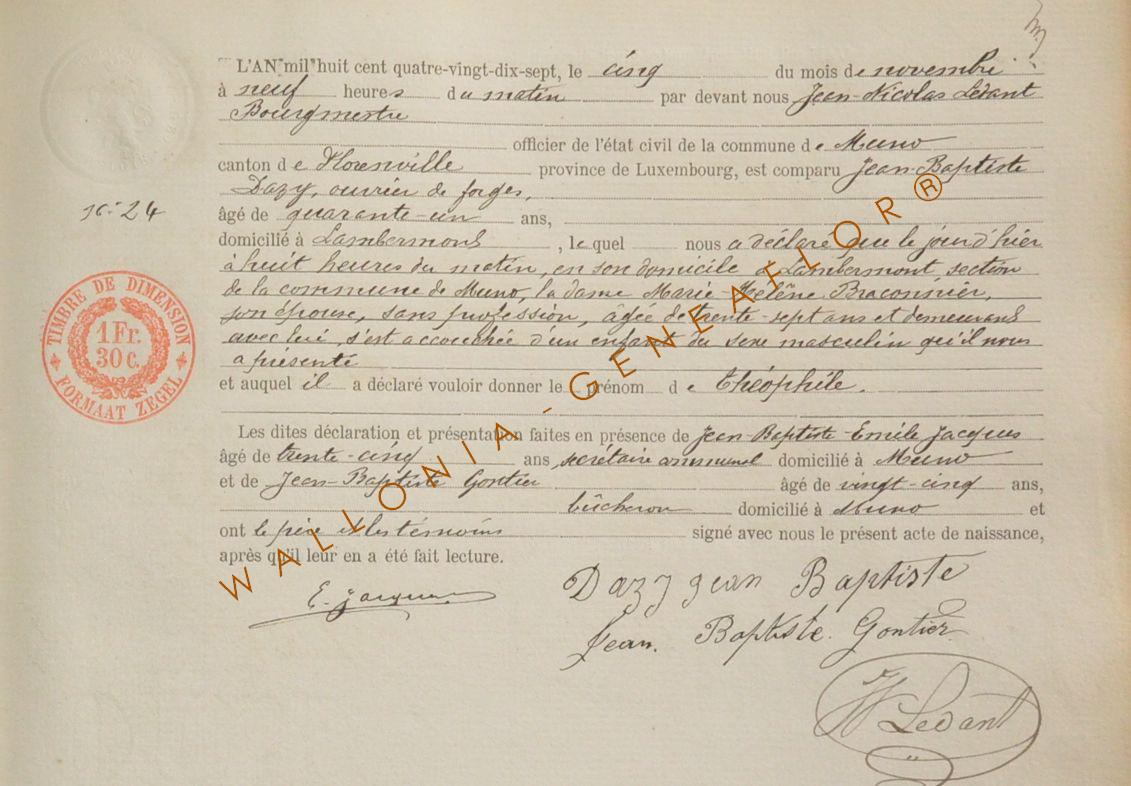 L'AN mil huit cent quatre-vingt-dix-sept, le cinq du mois de novembre
à neuf heures du matin par devant nous Jean-Nicolas Ledant
Bourgmestre
officier de l'état civil de la commune de Muno
canton de Florenville province de Luxembourg, est comparu Jean-Baptiste
Dazy, ouvrier de forges,
N° 24
âgé de quarante-un ans,
domicilié à Lambermont, lequel nous a déclaré que le jour d'hier
à huit heures du matin, en son domicile à Lambermont, section
de la commune de Muno, la dame Marie-Hélène Braconnier,
son épouse, sans profession, âgée de trente-sept ans et demeurant
avec lui, s'est accouchée d'un enfant du sexe masculin qu'il nous
a présenté
et auquel il a déclaré vouloir donner le prénom de Théophile.
Les dites déclaration et présentation faites en présence de Jean-Baptiste-Emile Jacques
âgé de trente-cinq ans, secrétaire communal domicilié à Muno
et de Jean-Baptiste Gontier âgé de vingt-cinq ans,
bûcheron domicilié à Muno et
ont le père et les témoins signé avec nous le présent acte de naissance,
après qu'il leur en a été fait lecture.
E. Jacques
Dazy jean Baptiste
Jean. Baptiste. Gontier
Ledant
TIMBRE DE DIMENSION
1 Fr.
30 C.
FORMAAT ZEGEL
WALLONIA-GENEAFLOR®